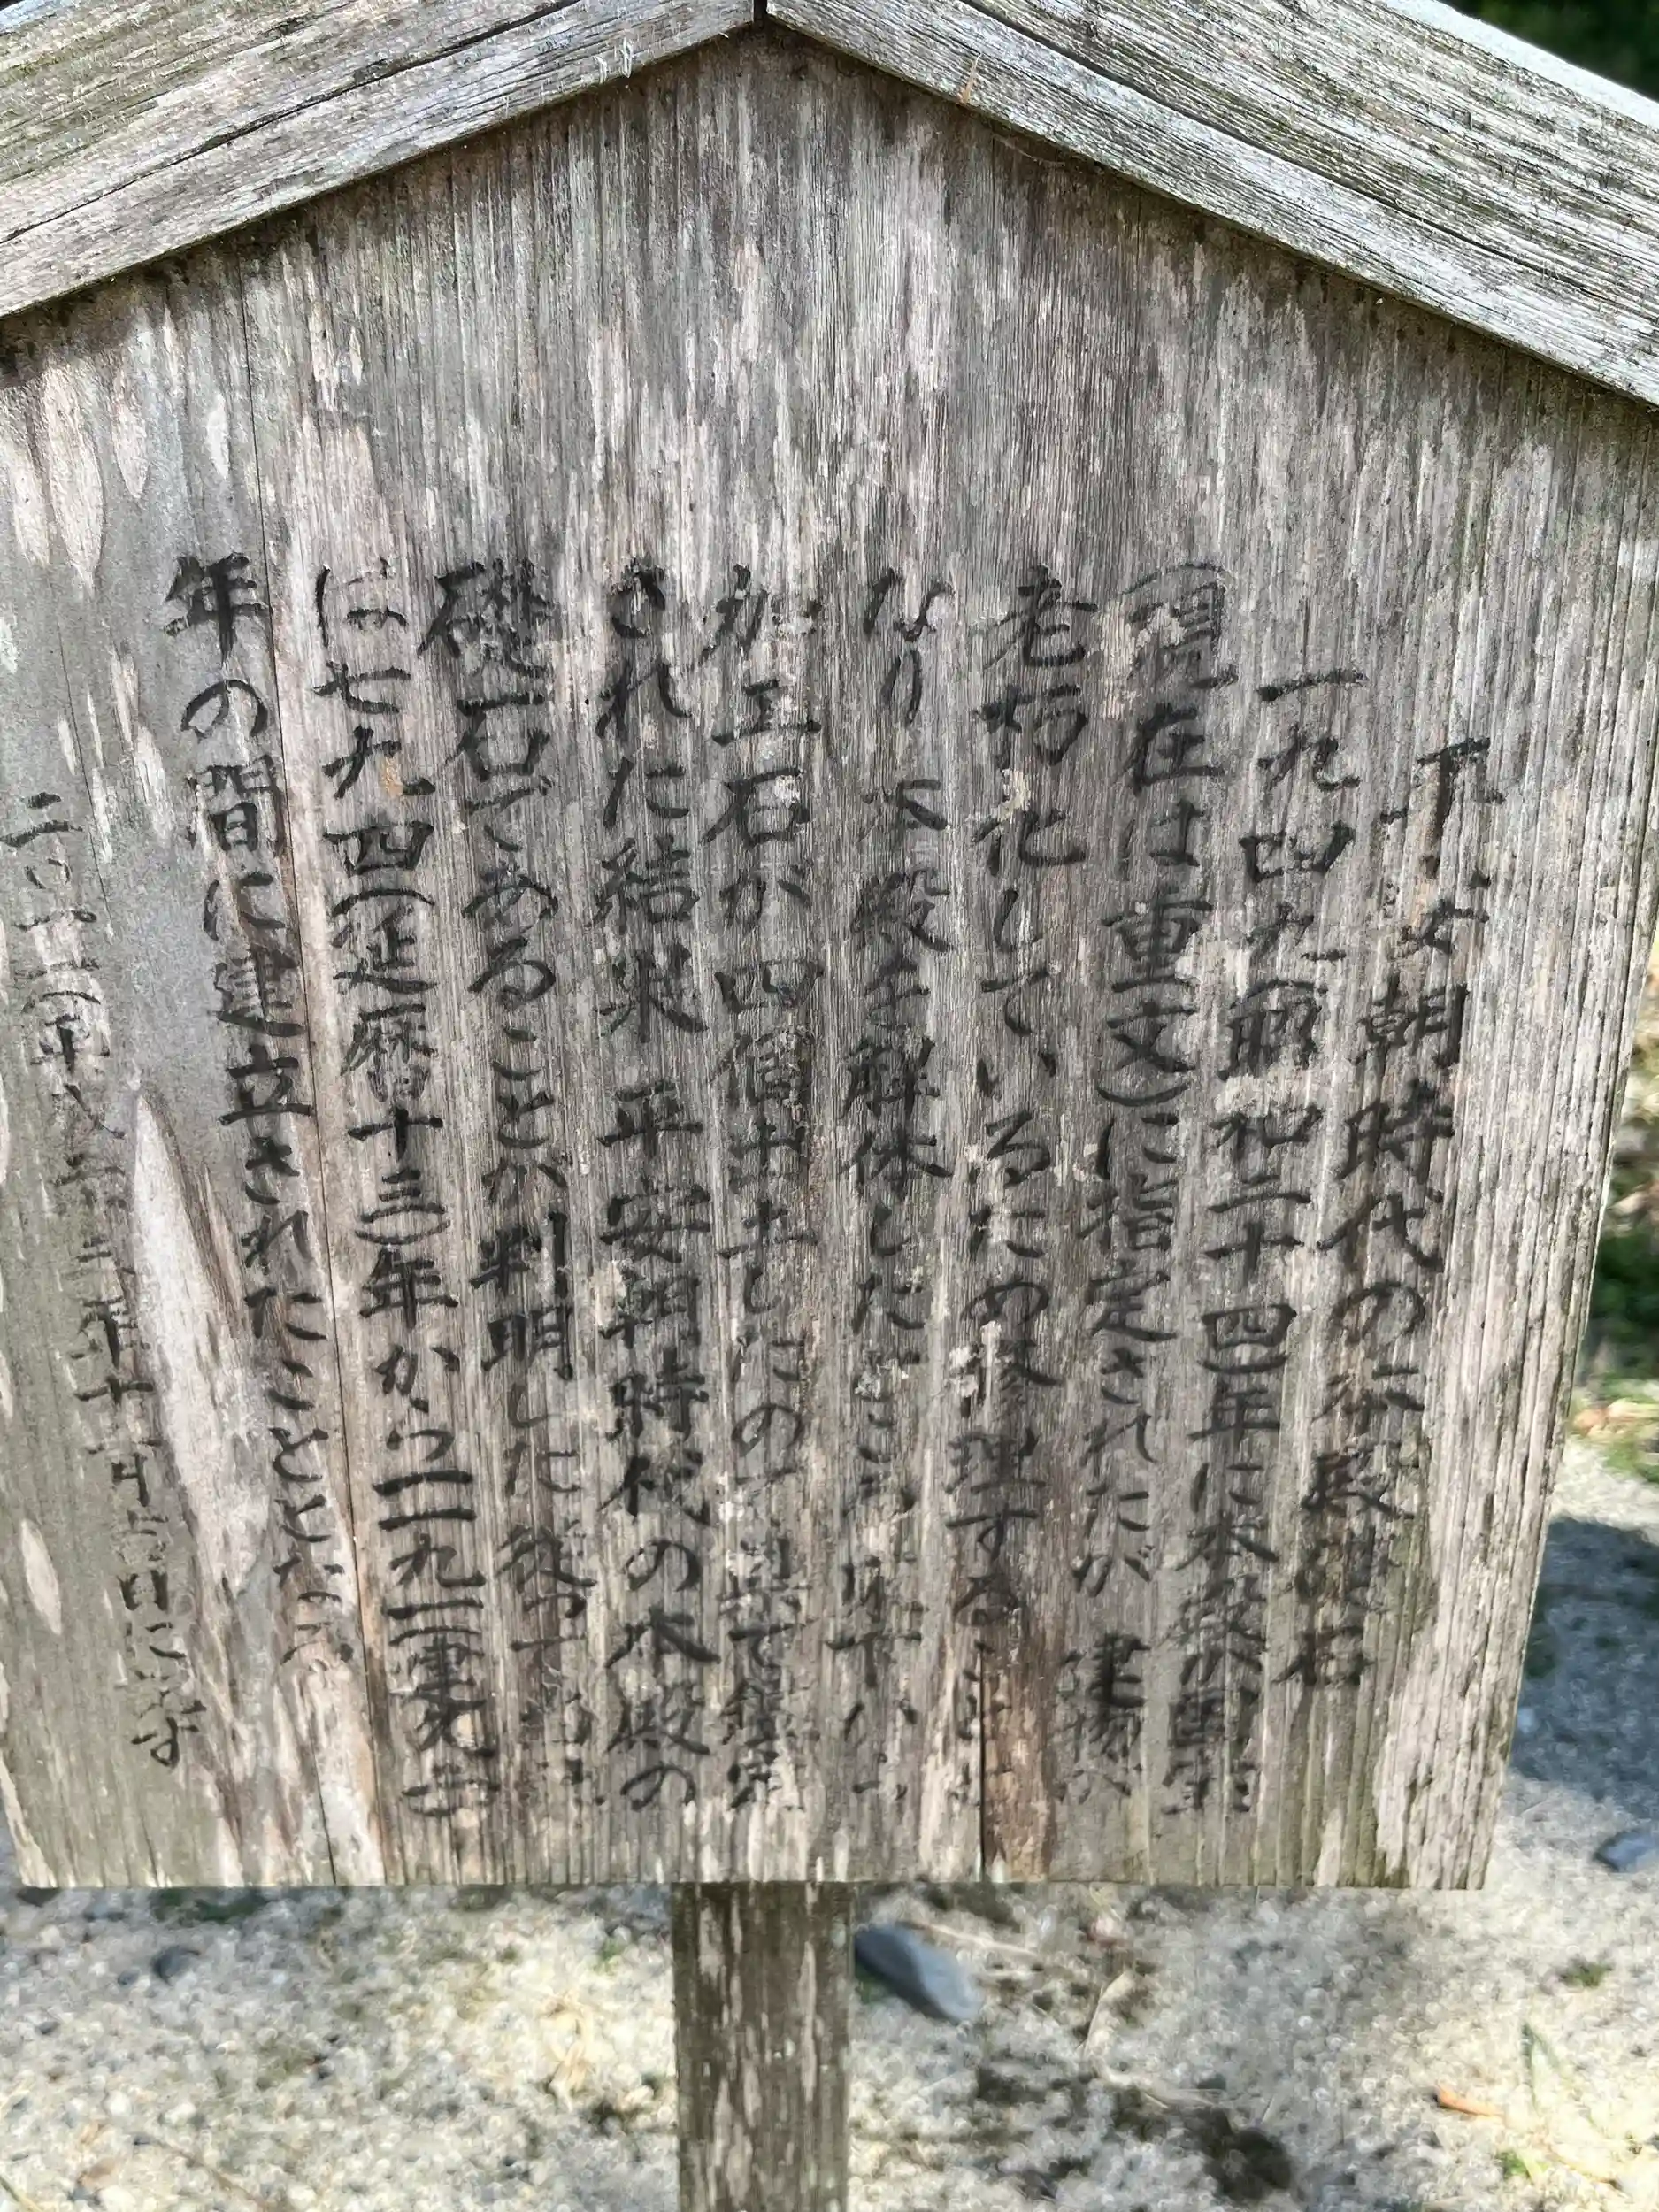 平安朝時代の本殿礎石
一九四九(昭和二十四)年に本殿が国宝
(現在は重文)に指定されたが 建物が
老朽化しているため修理する
なり 本殿を解体したところ 床下から
加工石が四個出土したので 県で鑑定
された結果 平安朝時代の本殿の
礎石であることが判明した 従って
は七九四(延暦十三)年から一一九二(建久
年の間に建立されたこととなる
二〇一三(平成二十五)年十